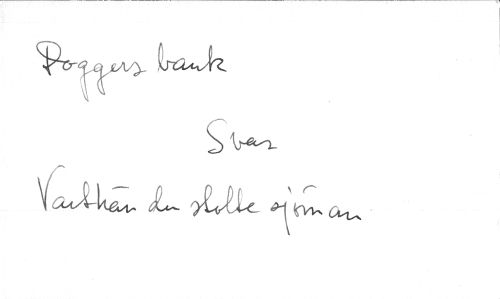 Doggers bank
Svar
Varthän du stolte sjöman